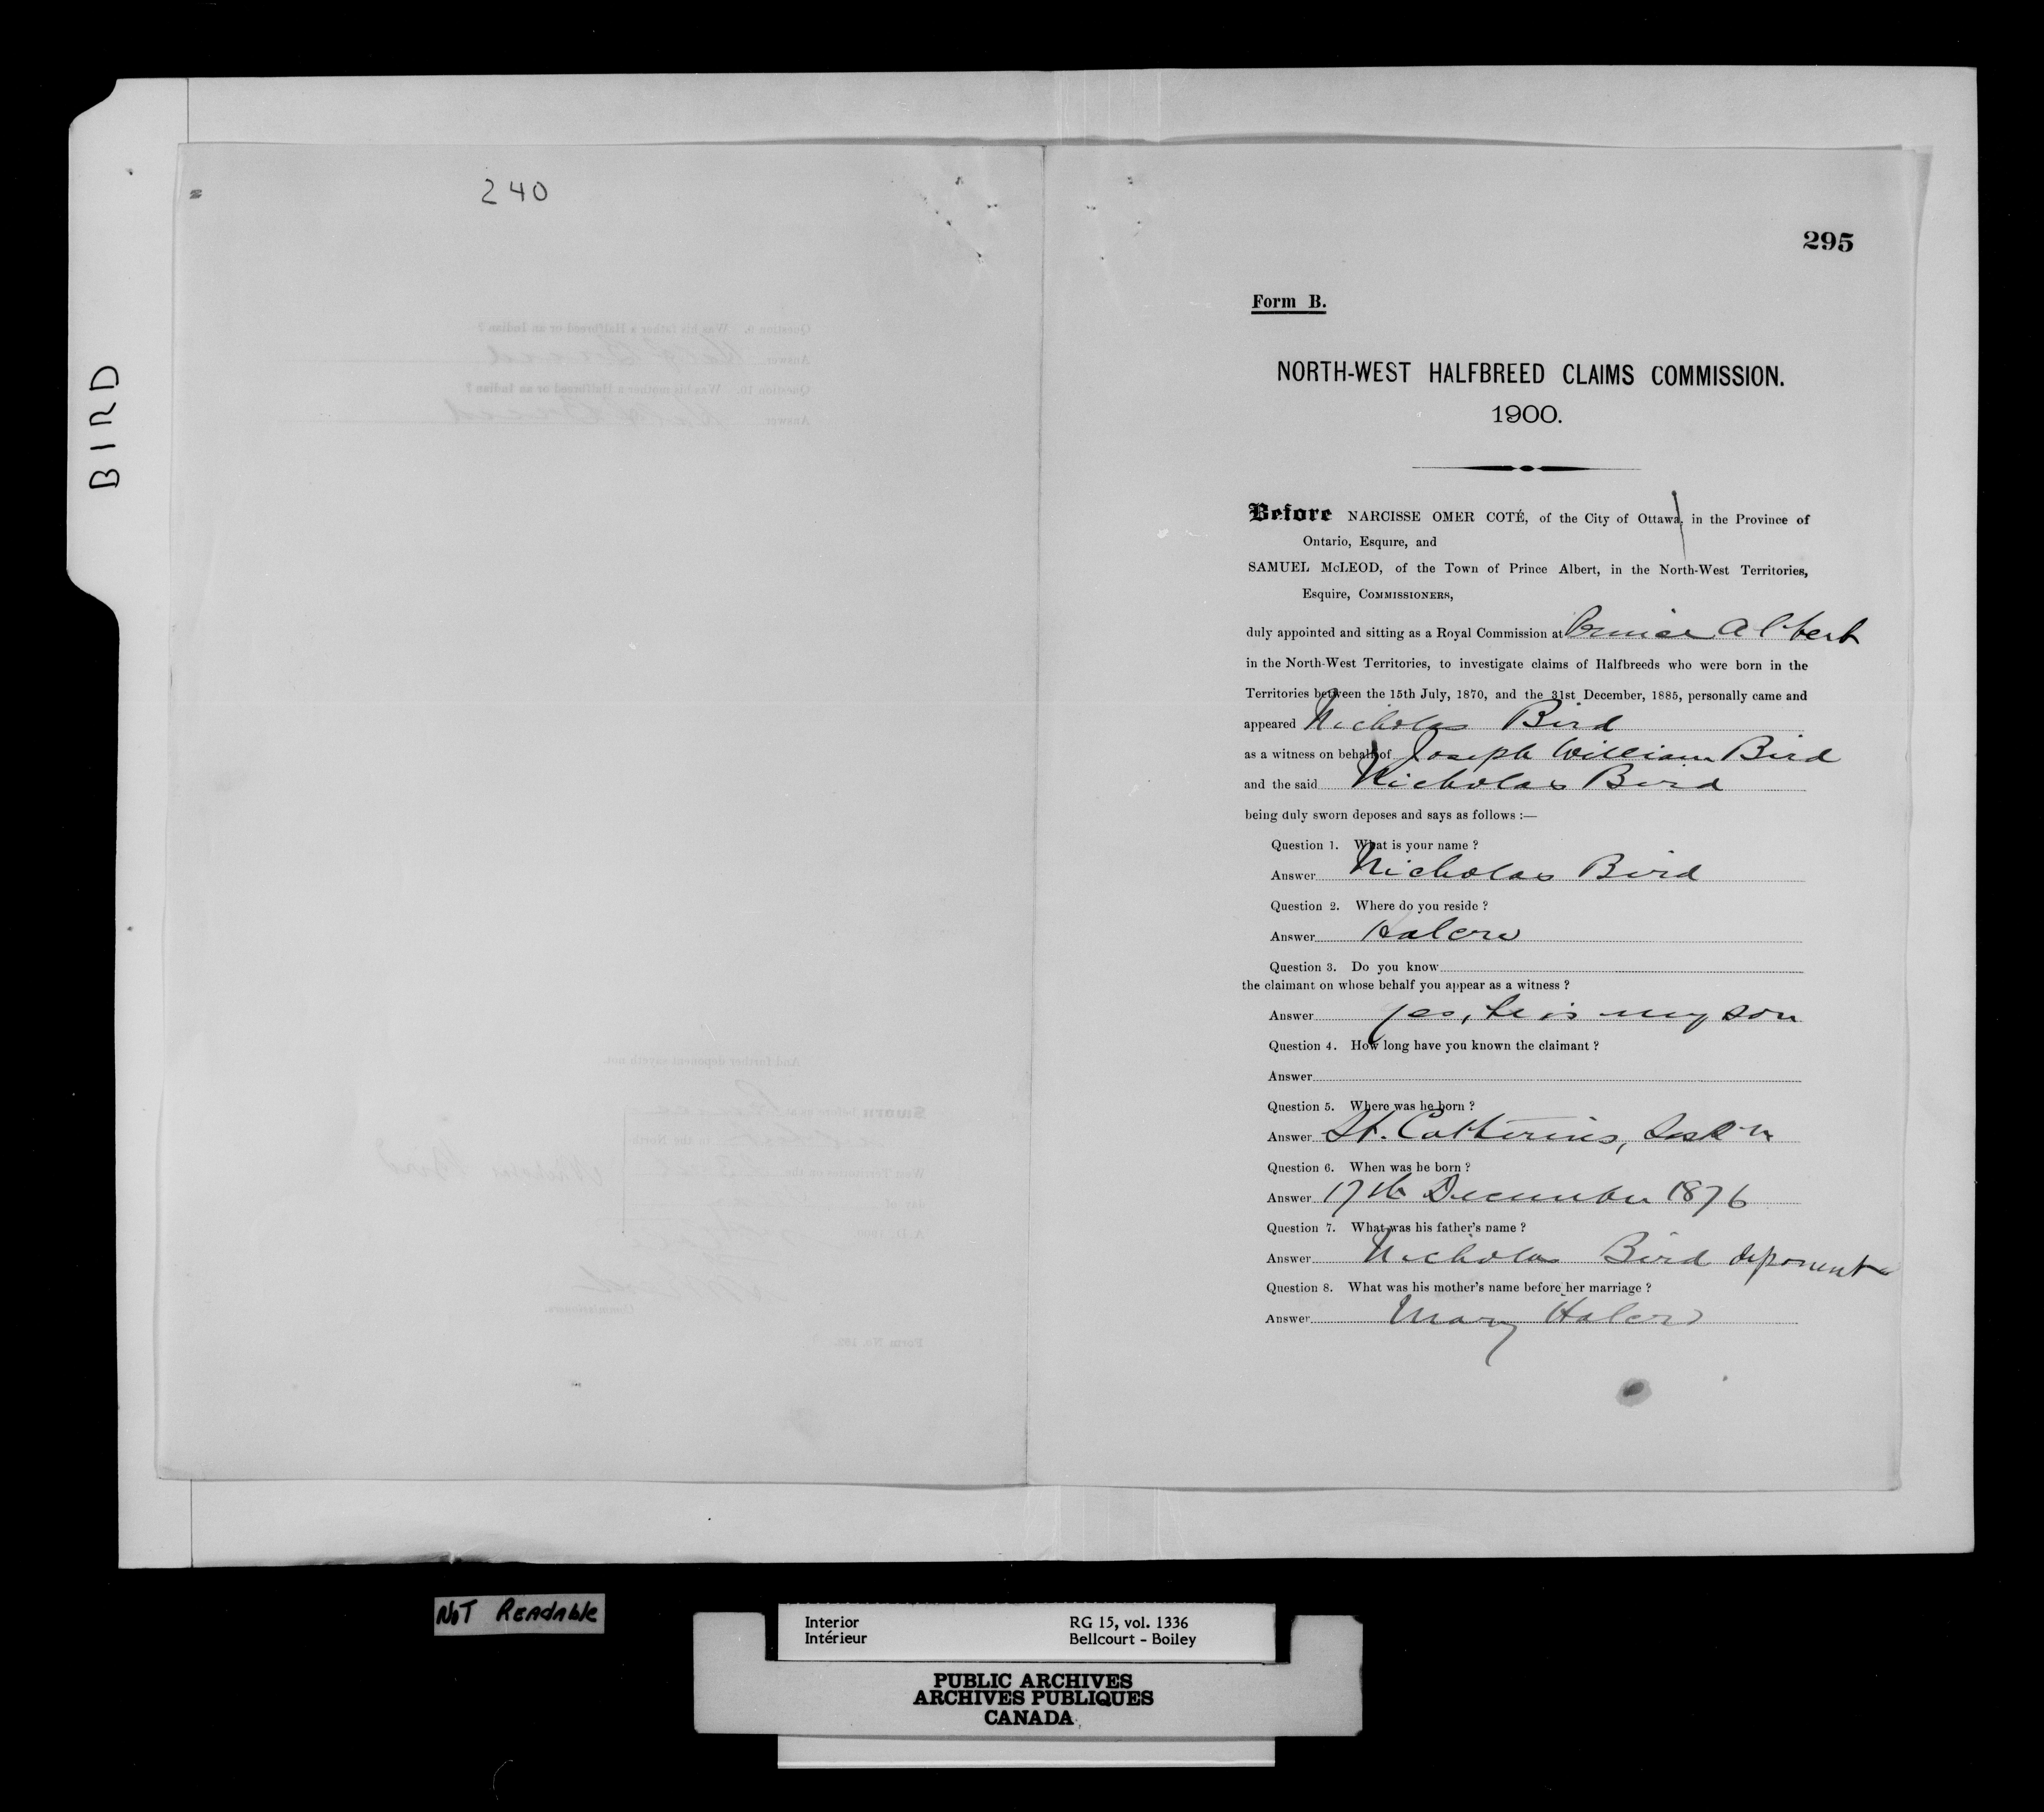 BIRD
240
295
Form B.
NORTH-WEST HALFBREED CLAIMS COMMISSION.
1900.
Before NARCISSE OMER COTÉ, of the City of Ottawa, in the Province of
Ontario, Esquire, and
SAMUEL McLEOD, of the Town of Prince Albert, in the North-West Territories,
Esquire, COMMISSIONERS,
duly appointed and sitting as a Royal Commission at Prince Albert
in the North-West Territories, to investigate claims of Halfbreeds who were born in the
Territories between the 15th July, 1870, and the 31st December, 1885, personally came and
appeared Nicholas Bird
as a witness on behalf of Joseph William Bird
and the said Nicholas Bird
being duly sworn deposes and says as follows :—
Question 1. What is your name ?
Answer Nicholas Bird
Question 2. Where do you reside ?
Answer Halcro
Question 3. Do you know
the claimant on whose behalf you appear as a witness ?
Answer Yes, he is my son
Question 4. How long have you known the claimant ?
Answer
Question 5. Where was he born ?
Answer St. Catherins, Sask'n
Question 6. When was he born ?
Answer 17th December 1876
Question 7. What was his father's name ?
Answer Nicholas Bird deponent
Question 8. What was his mother's name before her marriage ?
Answer Mary Halcro
Question 9. Was his father a Halfbreed or an Indian ?
Answer Half Breed
Question 10. Was his mother a Halfbreed or an Indian ?
Answer Half Breed
And further deponent sayeth not.
Sworn before us at Prince
Albert in the North-
West Territories on the
day of
A.D. 1900
Nicholas Bird
Commissioners.
NOT READABLE
Interior RG 15, vol. 1336
Intérieur Bellcourt - Boiley
PUBLIC ARCHIVES
ARCHIVES PUBLIQUES
CANADA